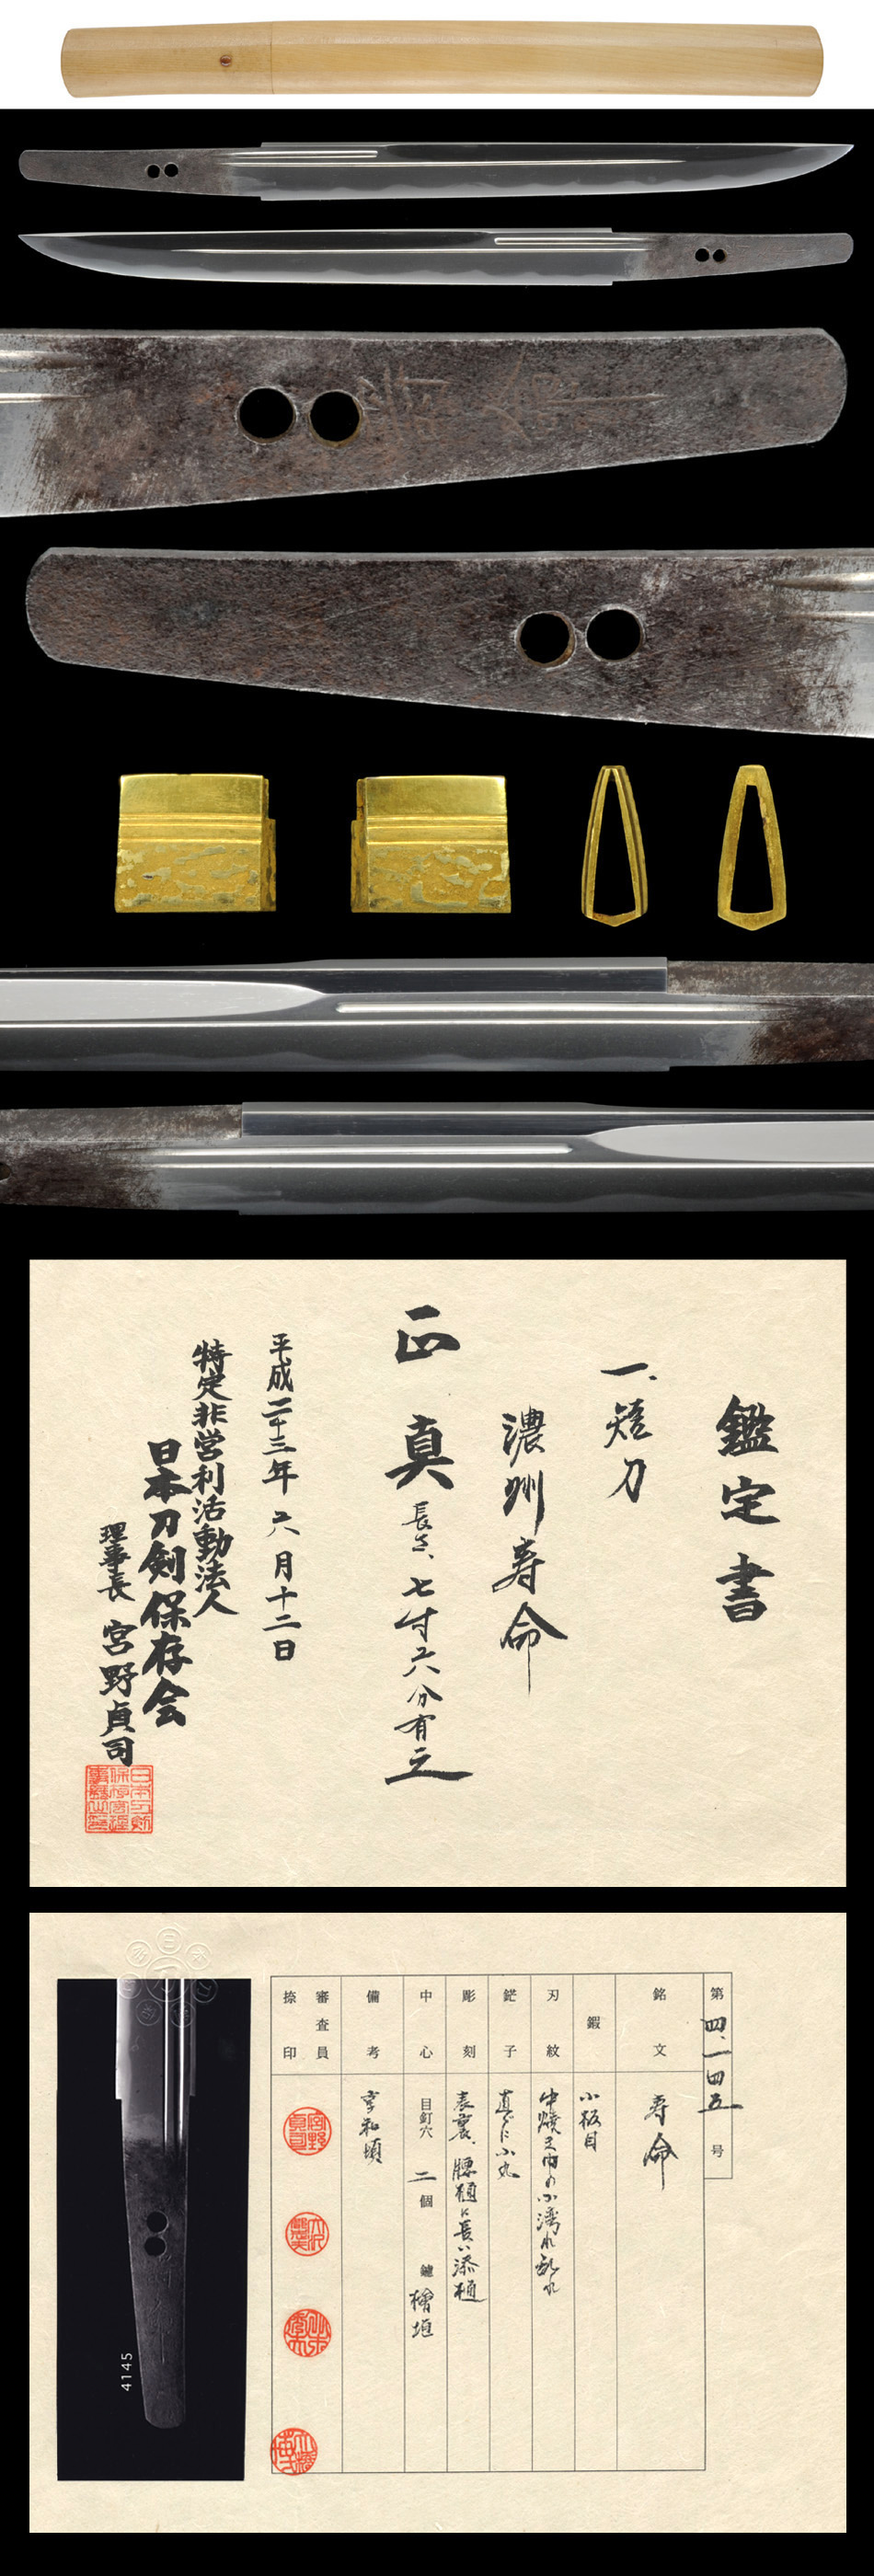 寿命
鑑定書
一、短刀
濃州寿命
正真
長さ、七寸六分有之
平成二十三年六月十二日
特定非営利活動法人
日本刀剣保存会
理事長 宮野貞司
第四、一四五号
銘文 寿命
鍜 小板目
刃紋 中焼き巾の小湾れ乱れ
鋩子 直ぐに小丸
彫刻 表裏、腰樋に長い添樋
中心 目釘穴 二個 鑢 檜垣
備考 享和頃
審査員
捺印
4145